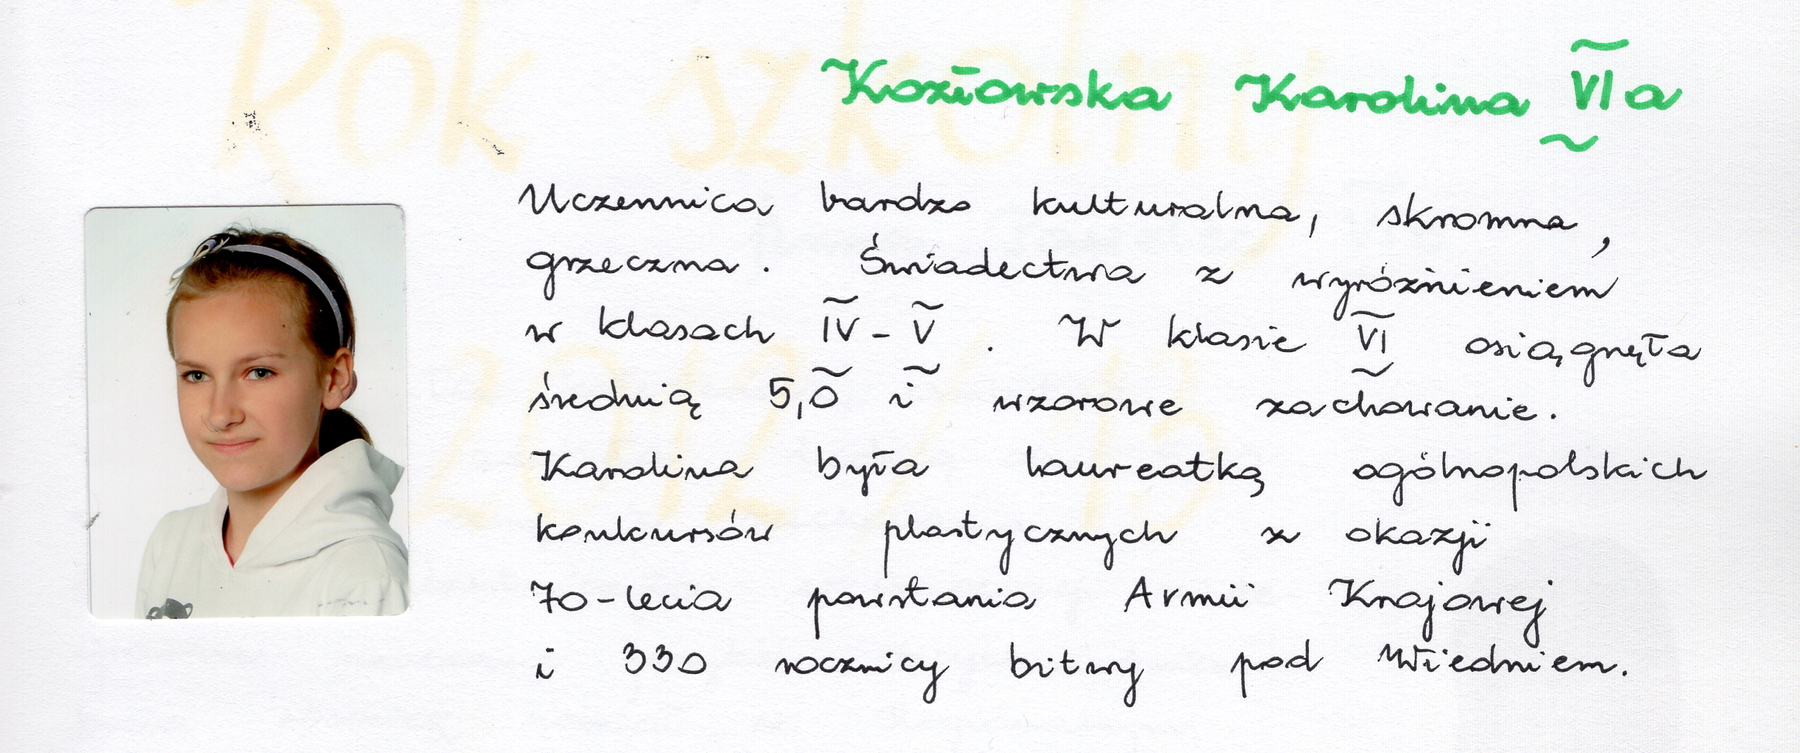 Rok szkolny
Kozłowska Karolina VI a
Uczennica bardzo kulturalna, skromna,
grzeczna. Świadectwa z wyróżnieniem
w klasach IV-V. W klasie VI osiągnęła
średnią 5,0 i wzorowe zachowanie.
Karolina była laureatką ogólnopolskich
konkursów plastycznych z okazji
70-lecia powstania Armii Krajowej
i 330 rocznicy bitwy pod Wiedniem.